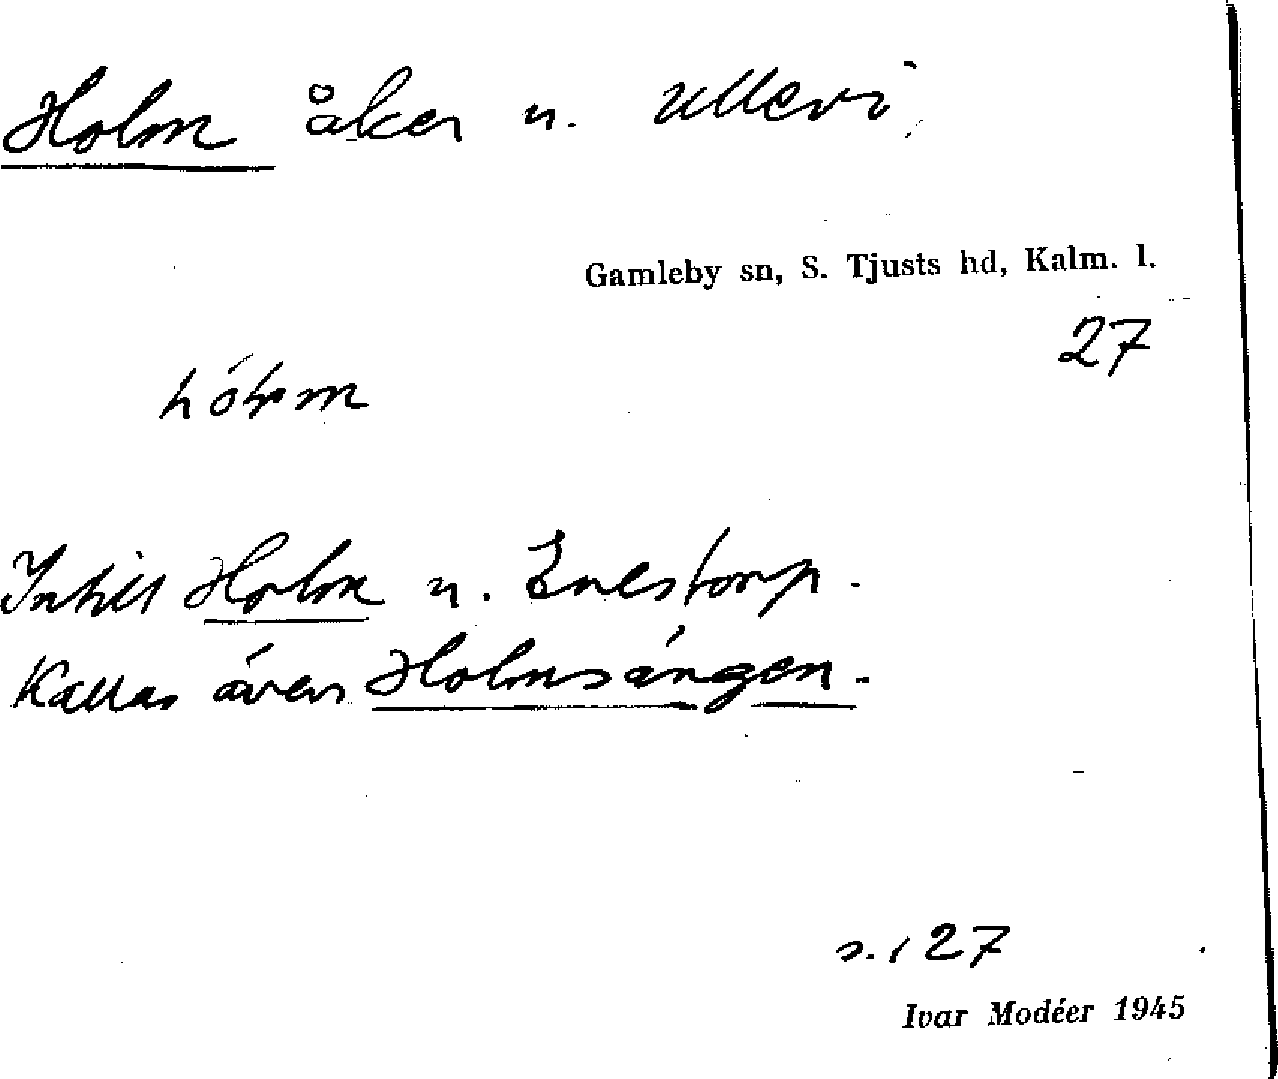 Holm åker u. Ullevi
Gamleby sn, S. Tjusts hd, Kalm. l.
27
Intill Holm u.
Kallas även Holmsängen.
s. 127
Ivar Modéer 1945